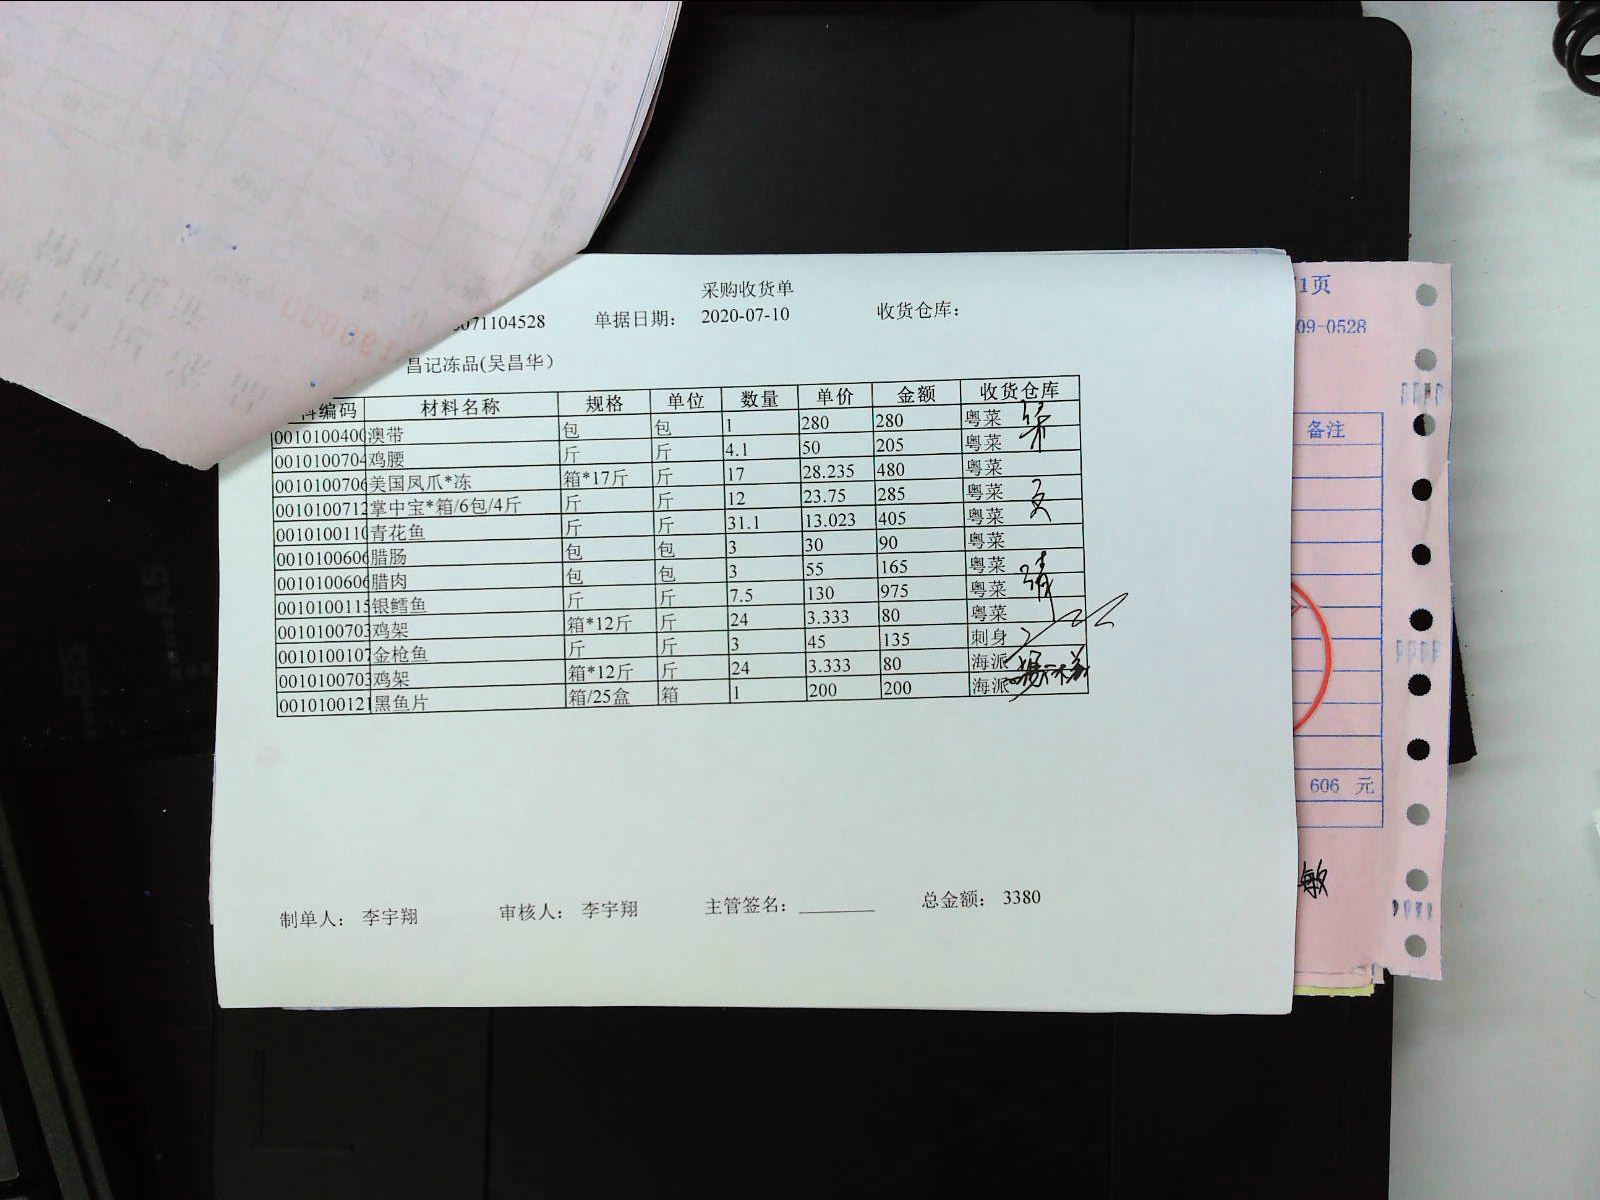 采购收货单
071104528 单据日期: 2020-07-10 收货仓库:
昌记冻品(吴昌华)
编码 材料名称 规格 单位 数量 单价 金额 收货仓库
0010100400 澳带 包 包 1 280 280 粤菜
0010100704 鸡腰 斤 斤 4.1 50 205 粤菜
0010100706 美国凤爪*冻 箱*17斤 斤 17 28.235 480 粤菜
0010100712 掌中宝*箱/6包/4斤 斤 斤 12 23.75 285 粤菜
0010100110 青花鱼 斤 斤 31.1 13.023 405 粤菜
0010100606 腊肠 包 包 3 30 90 粤菜
0010100606 腊肉 包 包 3 55 165 粤菜
0010100115 银鳕鱼 斤 斤 7.5 130 975 粤菜
0010100703 鸡架 箱*12斤 斤 24 3.333 80 粤菜
0010100107 金枪鱼 斤 斤 3 45 135 刺身
0010100703 鸡架 箱*12斤 斤 24 3.333 80 海派
0010100121 黑鱼片 箱/25盒 箱 1 200 200 海派
制单人: 李宇翔 审核人: 李宇翔 主管签名: 总金额: 3380
1页
09-0528
备注
606 元
敏